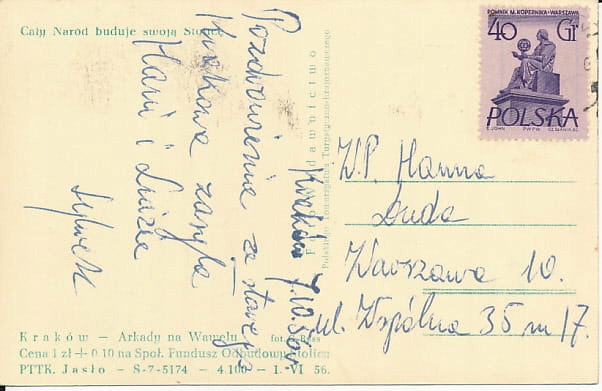 Cały Naród buduje swoją Stolicę
Kraków 7.10.56
Pozdrowienia ze starego
Krakowa zasyła
Hani i
Sylwek
Wydawnictwo
POMNIK M. KOPERNIKA - WARSZAWA
40 Gr
POLSKA
E. JOHN PWPW CZ. SŁANIA SC.
W.P. Hanna
Duda
Warszawa 10.
ul. Wspólna 35 m 17.
Kraków — Arkady na Wawelu fot.
Cena 1 zł + 0,10 na Społ. Fundusz Odbudowy Stolicy
PTTK. Jasło — S-7-5174 — 4.100 — 1. VI 56.